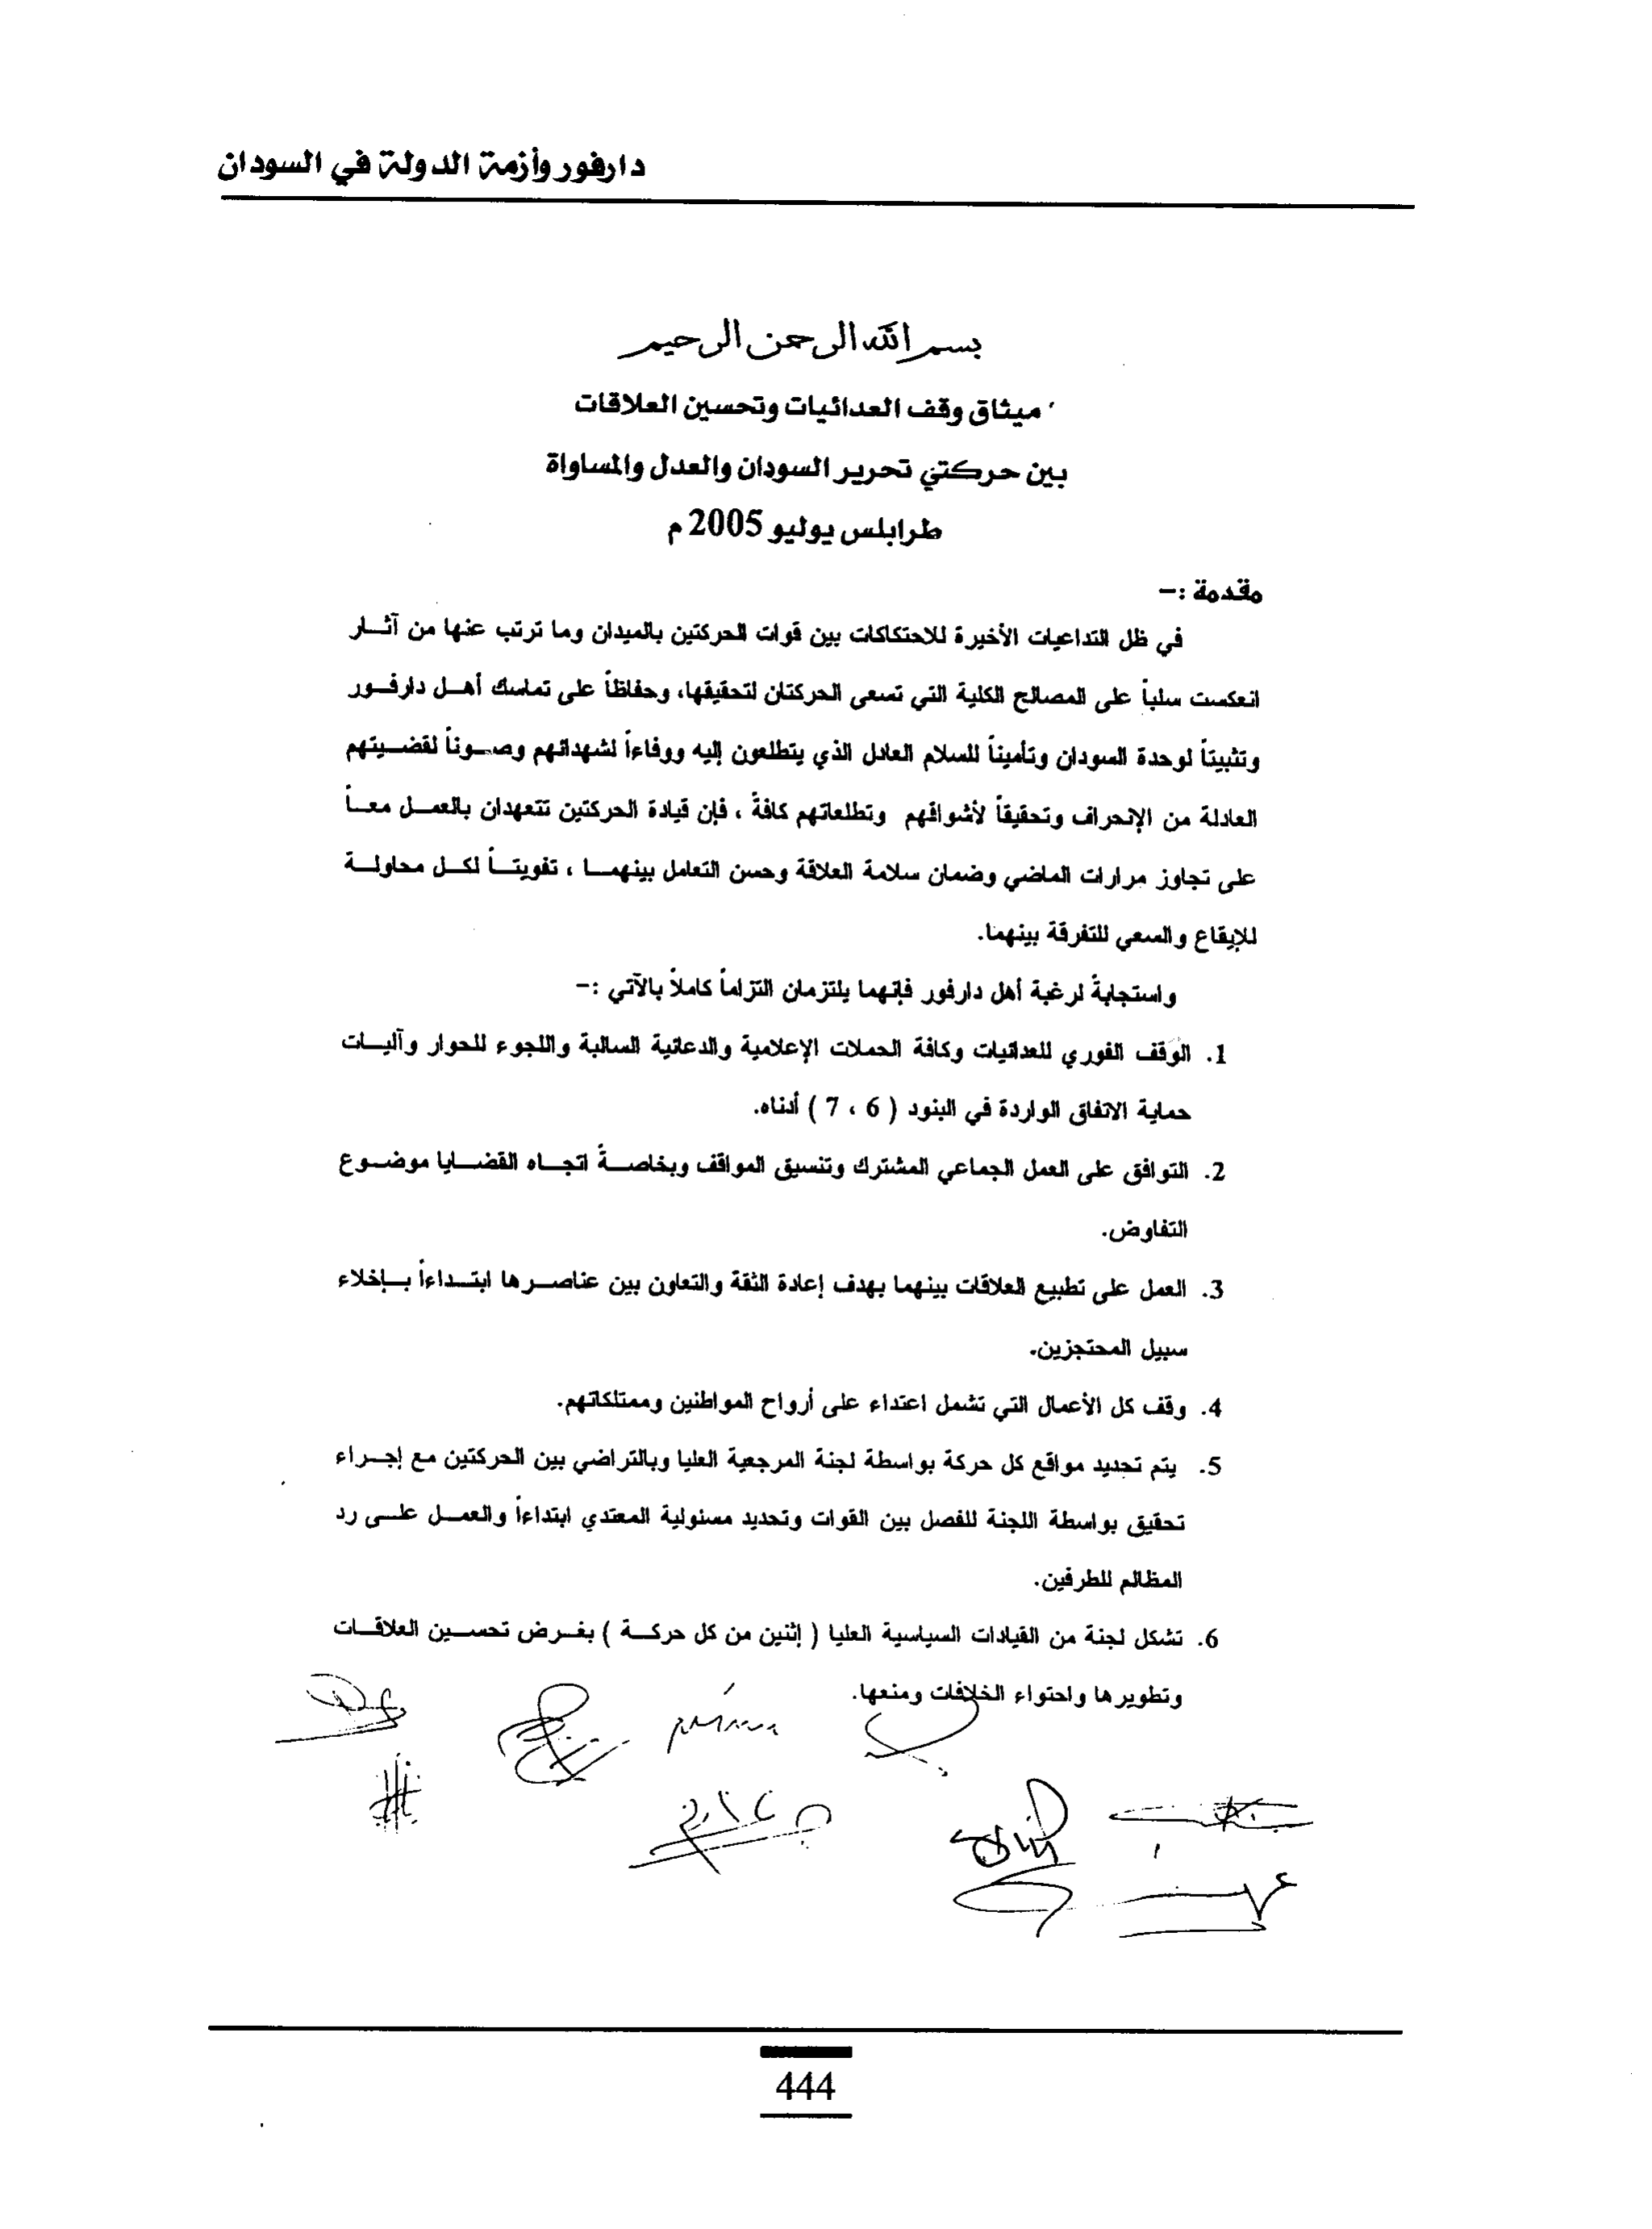 دارفور وأزمة الدولة في السودان
بسم الله الرحمن الرحيم
ميثاق وقف العدائيات وتحسين العلاقات
بين حركتي تحرير السودان والعدل والمساواة
طرابلس يوليو 2005 م
مقدمة :–
في ظل التداعيات الأخيرة للاحتكاكات بين قوات الحركتين بالميدان وما ترتب عنها من آثار
انعكست سلباً على المصالح الكلية التي تسعى الحركتان لتحقيقها، وحفاظاً على تماسك أهل دارفور
وتثبيتاً لوحدة السودان وتأميناً للسلام العادل الذي يتطلعون إليه ووفاءاً لشهدائهم وصوناً لقضيتهم
العادلة من الإنحراف وتحقيقاً لأشواقهم وتطلعاتهم كافةً ، فإن قيادة الحركتين تتعهدان بالعمل معاً
على تجاوز مرارات الماضي وضمان سلامة العلاقة وحسن التعامل بينهما ، تفويتاً لكل محاولة
للإيقاع والسعي للتفرقة بينهما.
واستجابةً لرغبة أهل دارفور فإنهما يلتزمان التزاماً كاملاً بالآتي :–
1. الوقف الفوري للعدائيات وكافة الحملات الإعلامية والدعائية السالبة واللجوء للحوار وآليات
حماية الاتفاق الواردة في البنود ( 6 ، 7 ) أدناه.
2. التوافق على العمل الجماعي المشترك وتنسيق المواقف وبخاصةً اتجاه القضايا موضوع
التفاوض.
3. العمل على تطبيع العلاقات بينهما بهدف إعادة الثقة والتعاون بين عناصرها ابتداءاً بإخلاء
سبيل المحتجزين.
4. وقف كل الأعمال التي تشمل اعتداء على أرواح المواطنين وممتلكاتهم.
5. يتم تحديد مواقع كل حركة بواسطة لجنة المرجعية العليا وبالتراضي بين الحركتين مع إجراء
تحقيق بواسطة اللجنة للفصل بين القوات وتحديد مسئولية المعتدي ابتداءاً والعمل على رد
المظالم للطرفين.
6. تشكل لجنة من القيادات السياسية العليا ( إثنين من كل حركة ) بغرض تحسين العلاقات
وتطويرها واحتواء الخلافات ومنعها.
444